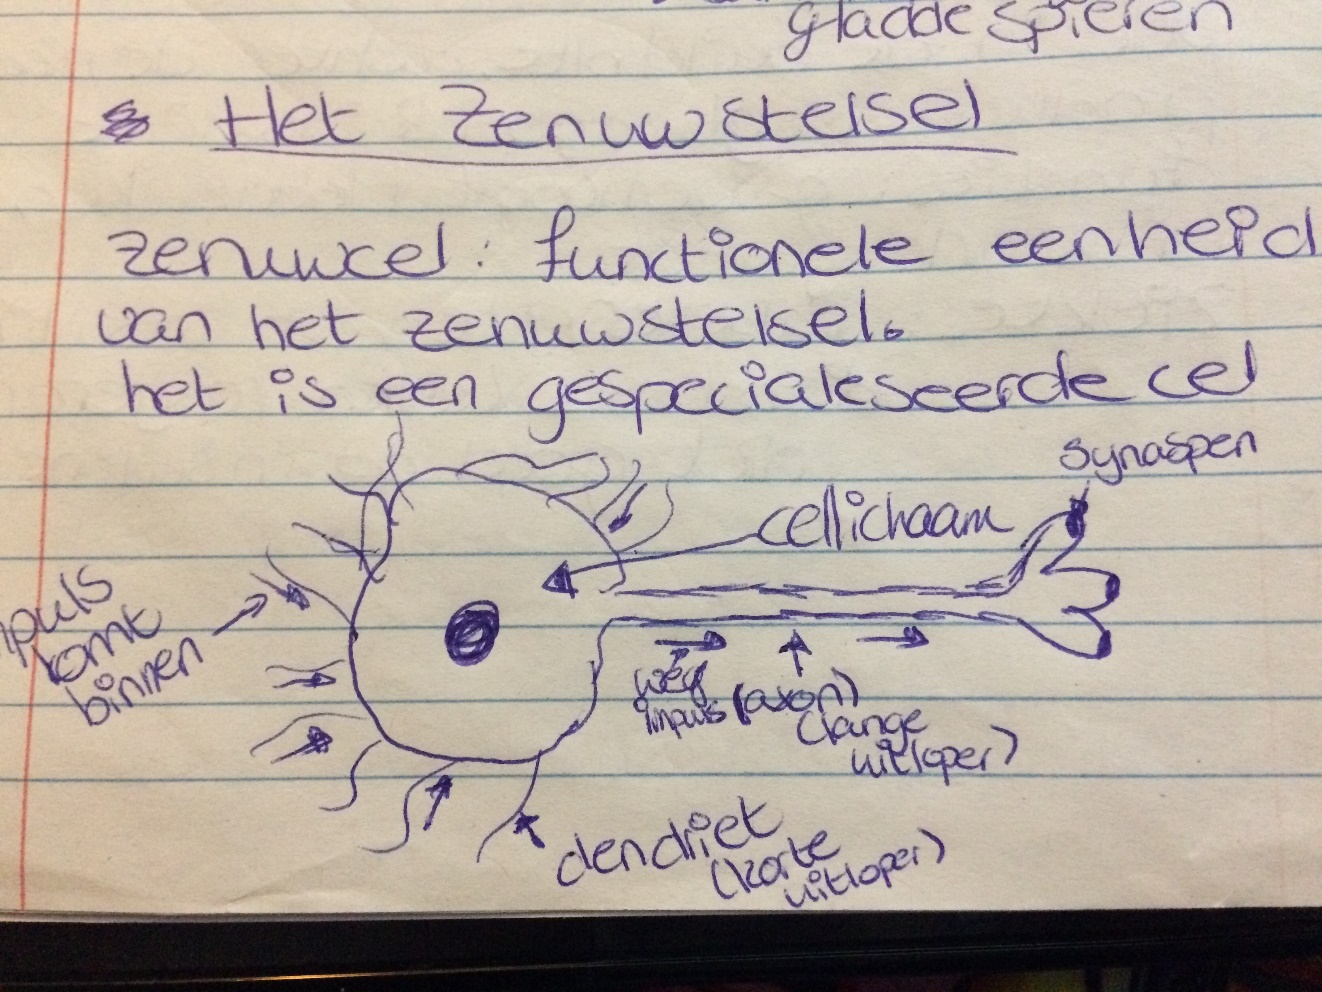 gladde spieren
Het Zenuwstelsel
zenuwcel: functionele eenheid
van het zenuwstelsel.
het is een gespecialeseerde cel
synaspen
cellichaam
puls
komt
binnen
weg
impuls
(axon)
(lange
uitloper)
dendriet
(korte
uitloper)